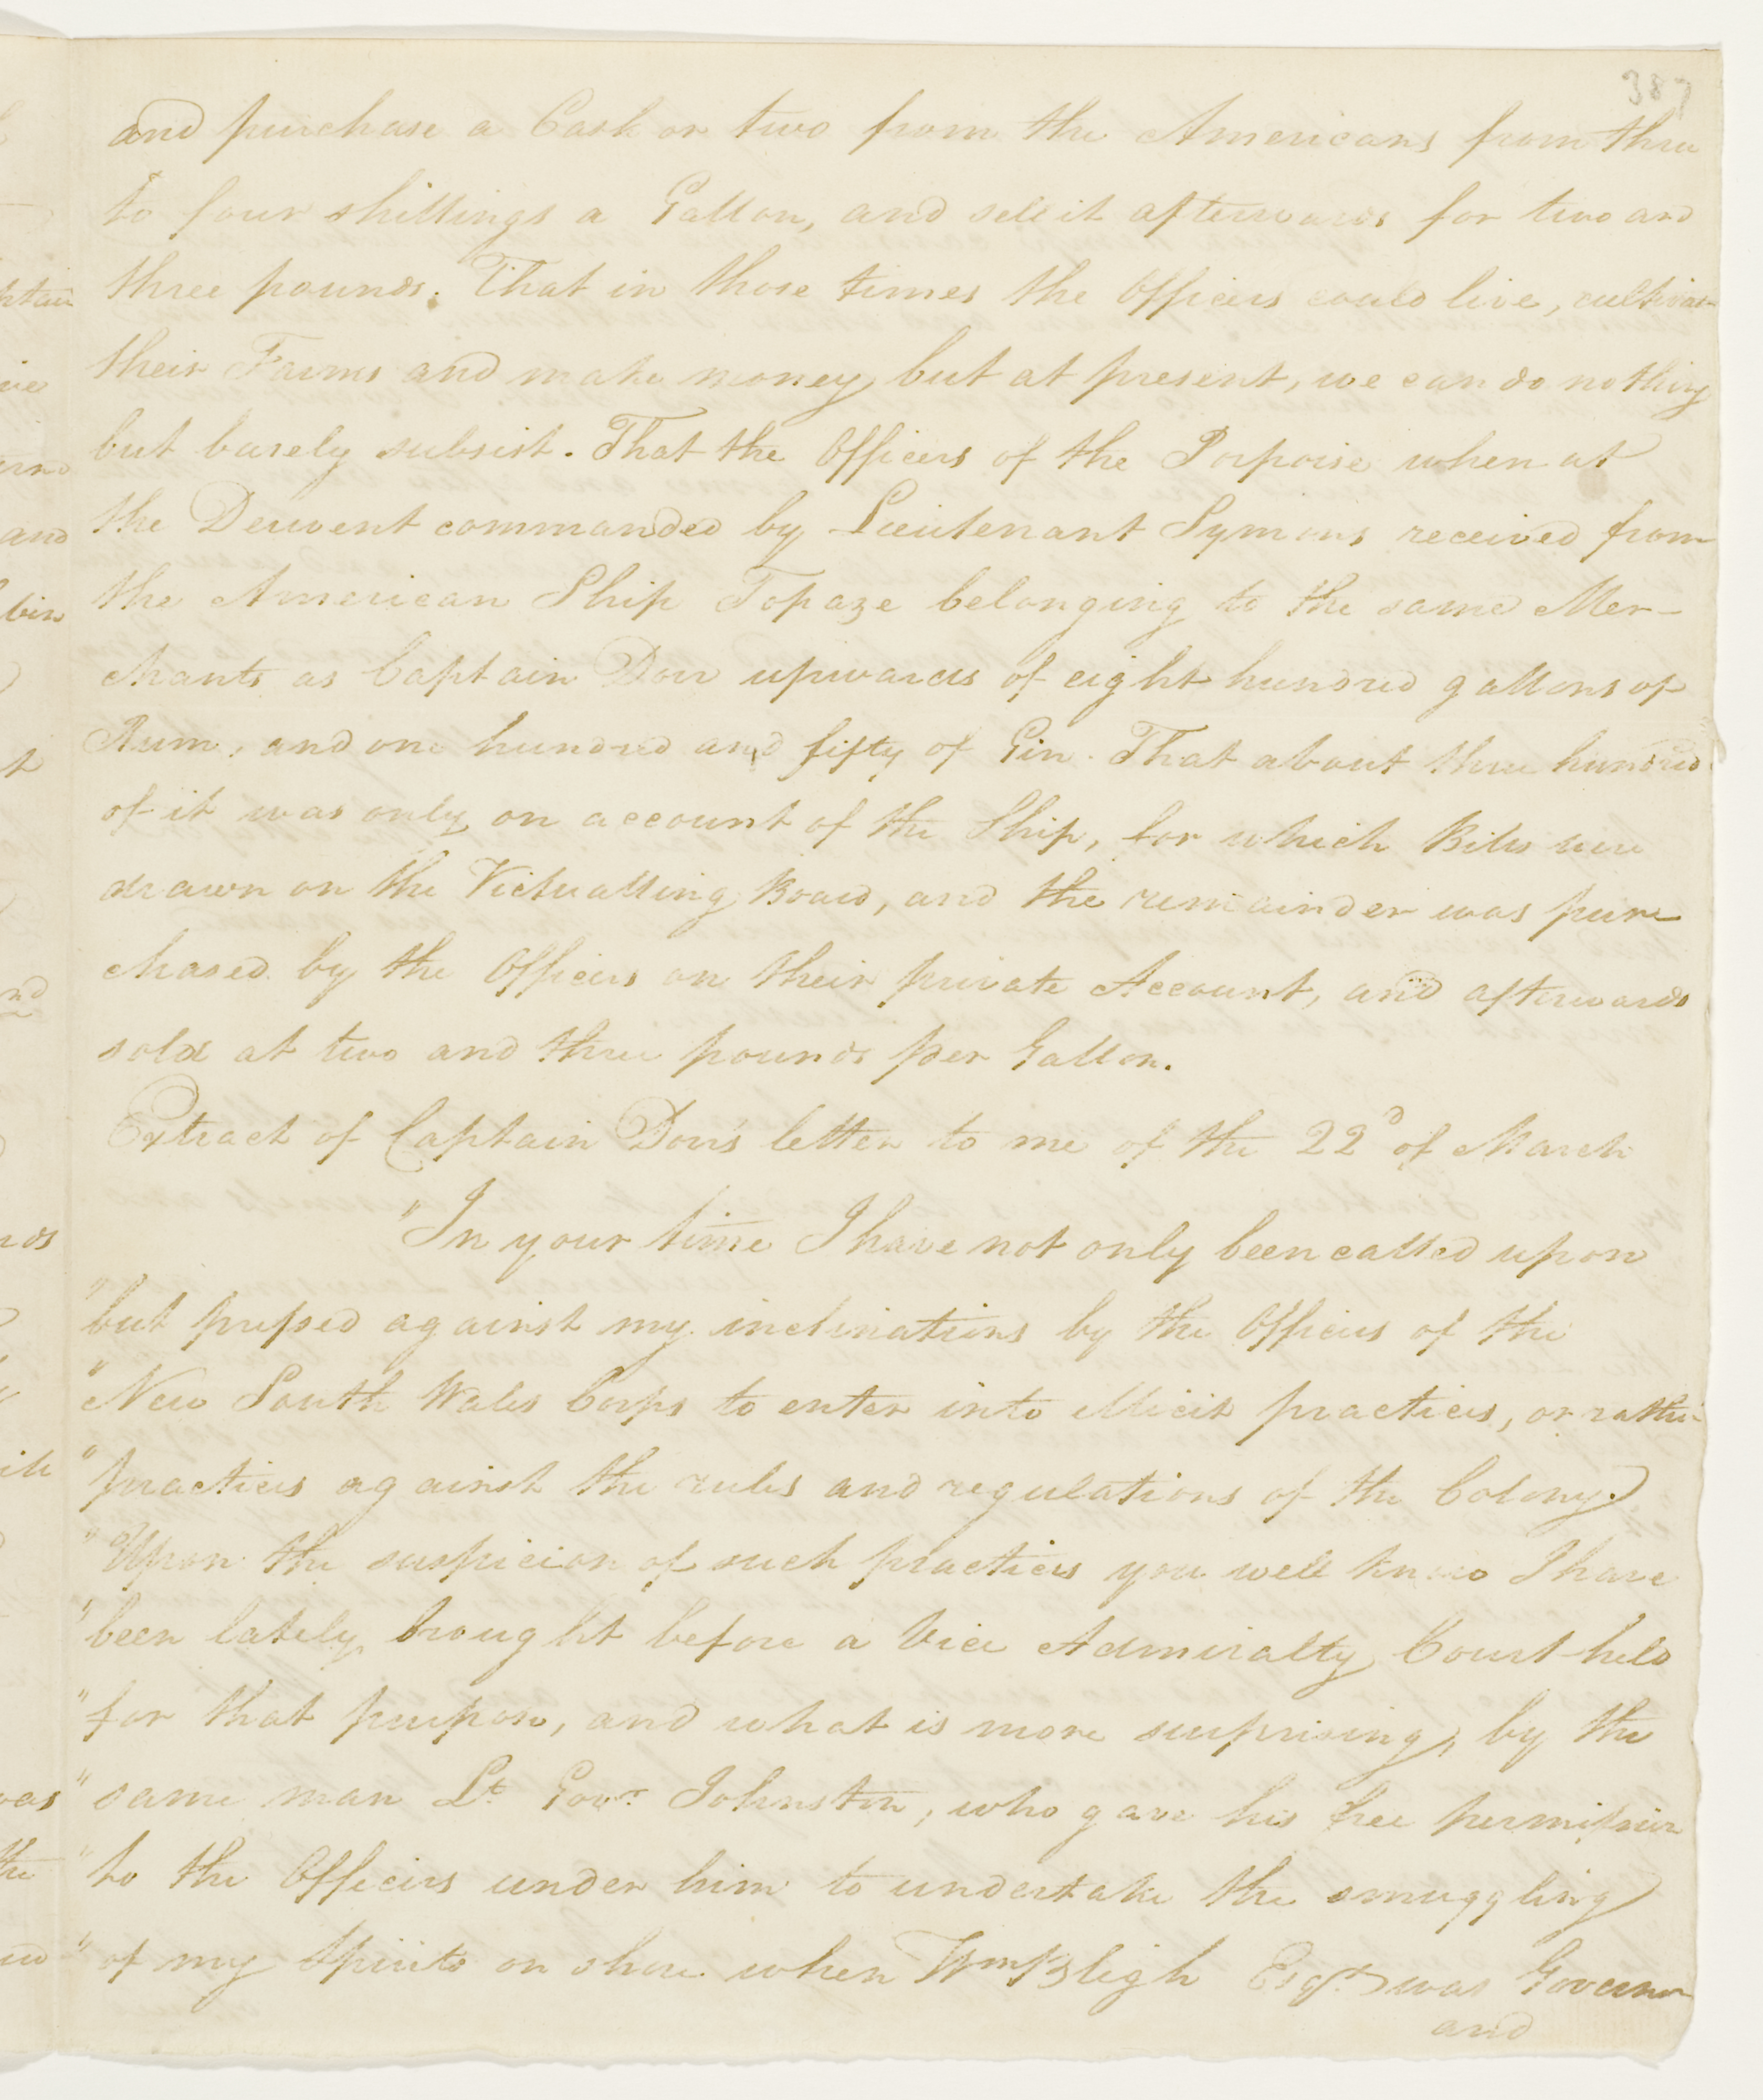 387
and purchase a Cask or two from the Americans from three
to four shillings a Gallon, and sell it afterwards for two and
three pounds. That in those times the Officers could live, cultivate
their Farms and make money, but at present, we can do nothing
but barely subsist. That the Officers of the Porpoise when at
the Derwent commanded by Lieutenant Symons received from
the American Ship Topaze belonging to the same Mer-
chants as Captain Dorr upwards of eight hundred gallons of
Rum, and one hundred and fifty of Gin. That about three hundred
of it was only on account of the Ship, for which Bills were
drawn on the Victualling Board, and the remainder was pur-
chased by the Officers on their private Account, and afterwards
sold at two and three pounds per Gallon.
Extract of Captain Dorr's letter to me of the 22d of March
"In your time I have not only been called upon
"but pressed against my inclinations by the Officers of the
"New South Wales Corps to enter into illicit practices, or rather
"practices against the rules and regulations of the Colony.
"Upon the suspicion of such practices you well know I have
"been lately brought before a Vice Admiralty Court held
"for that purpose, and what is more surprising, by the
"same man Lt. Govr. Johnston, who gave his free permission
"to the Officers under him to undertake the smuggling
"of my Spirits on shore when Wm Bligh Esqr. was Governor
and